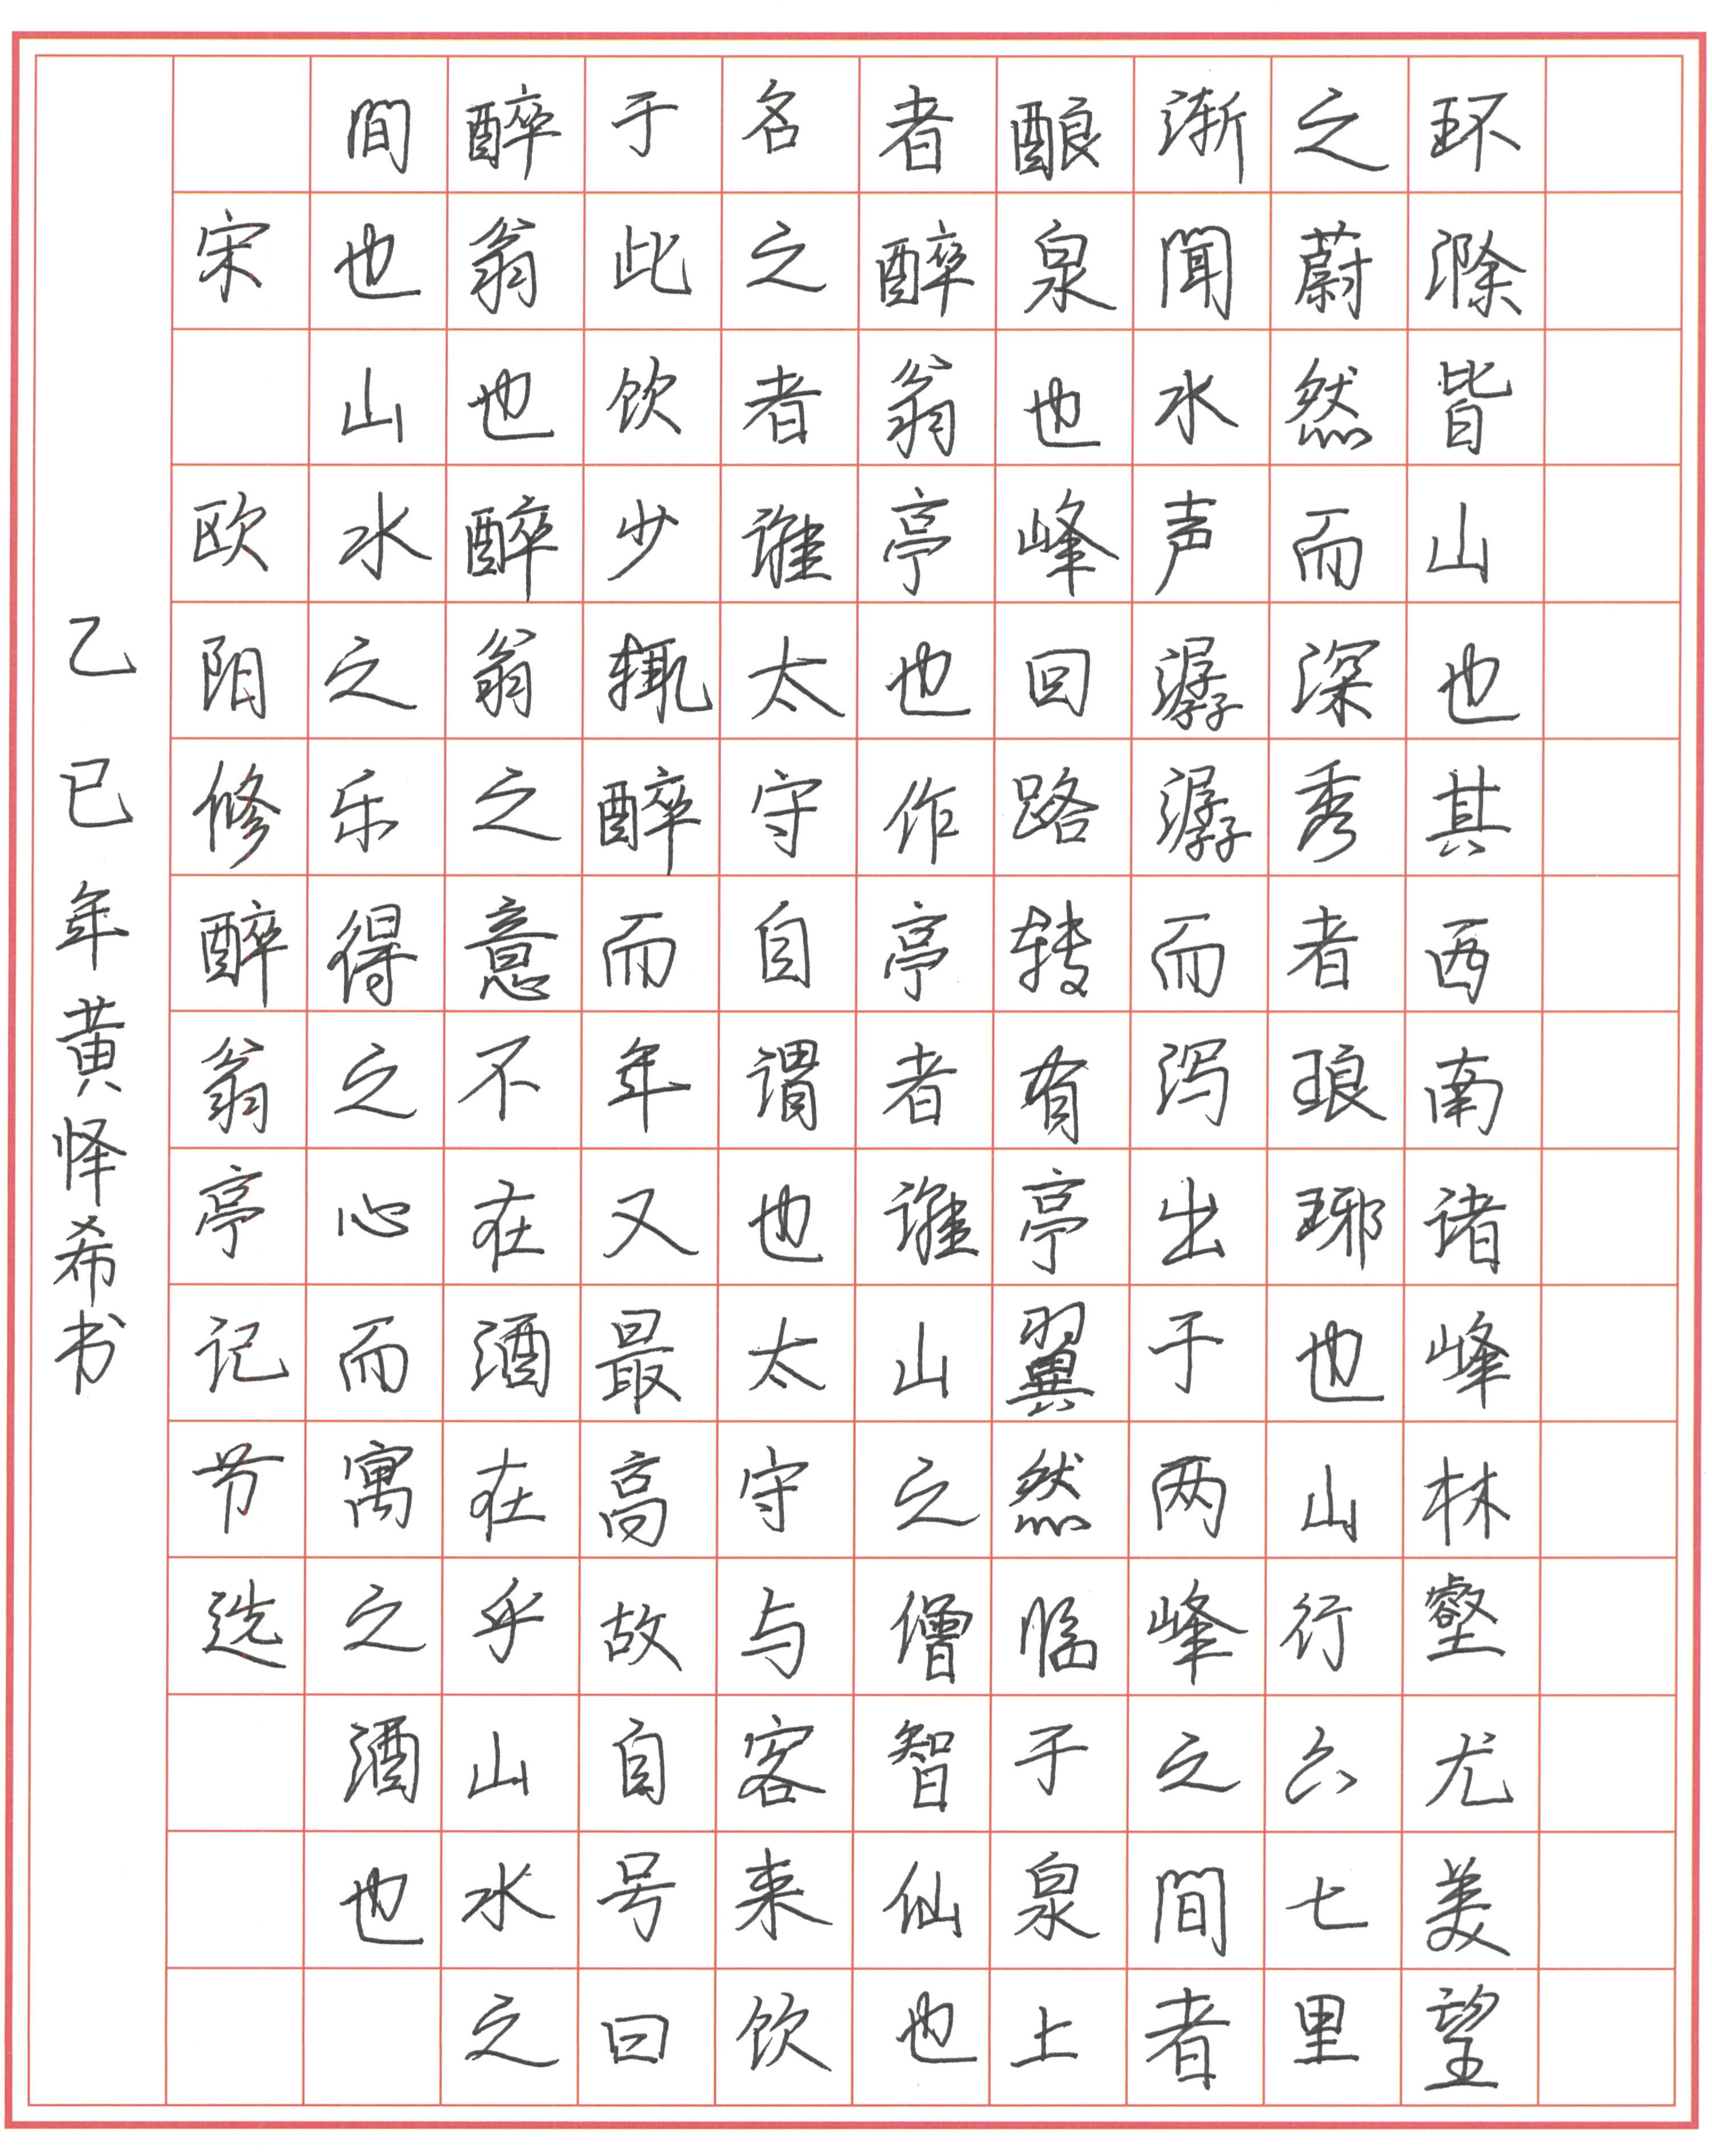 环滁皆山也其西南诸峰林壑尤美望
之蔚然而深秀者琅琊也山行六七里
渐聞水声潺潺而泻出于两峰之間者
酿泉也峰回路转有亭翼然临于泉上
者醉翁亭也作亭者谁山之僧智仙也
名之者谁太守自谓也太守与客来饮
于此饮少辄醉而年又最高故自号曰
醉翁也醉翁之意不在酒在乎山水之
間也山水之乐得之心而寓之酒也
宋 欧阳修醉翁亭记节选
乙巳年黄怿希书